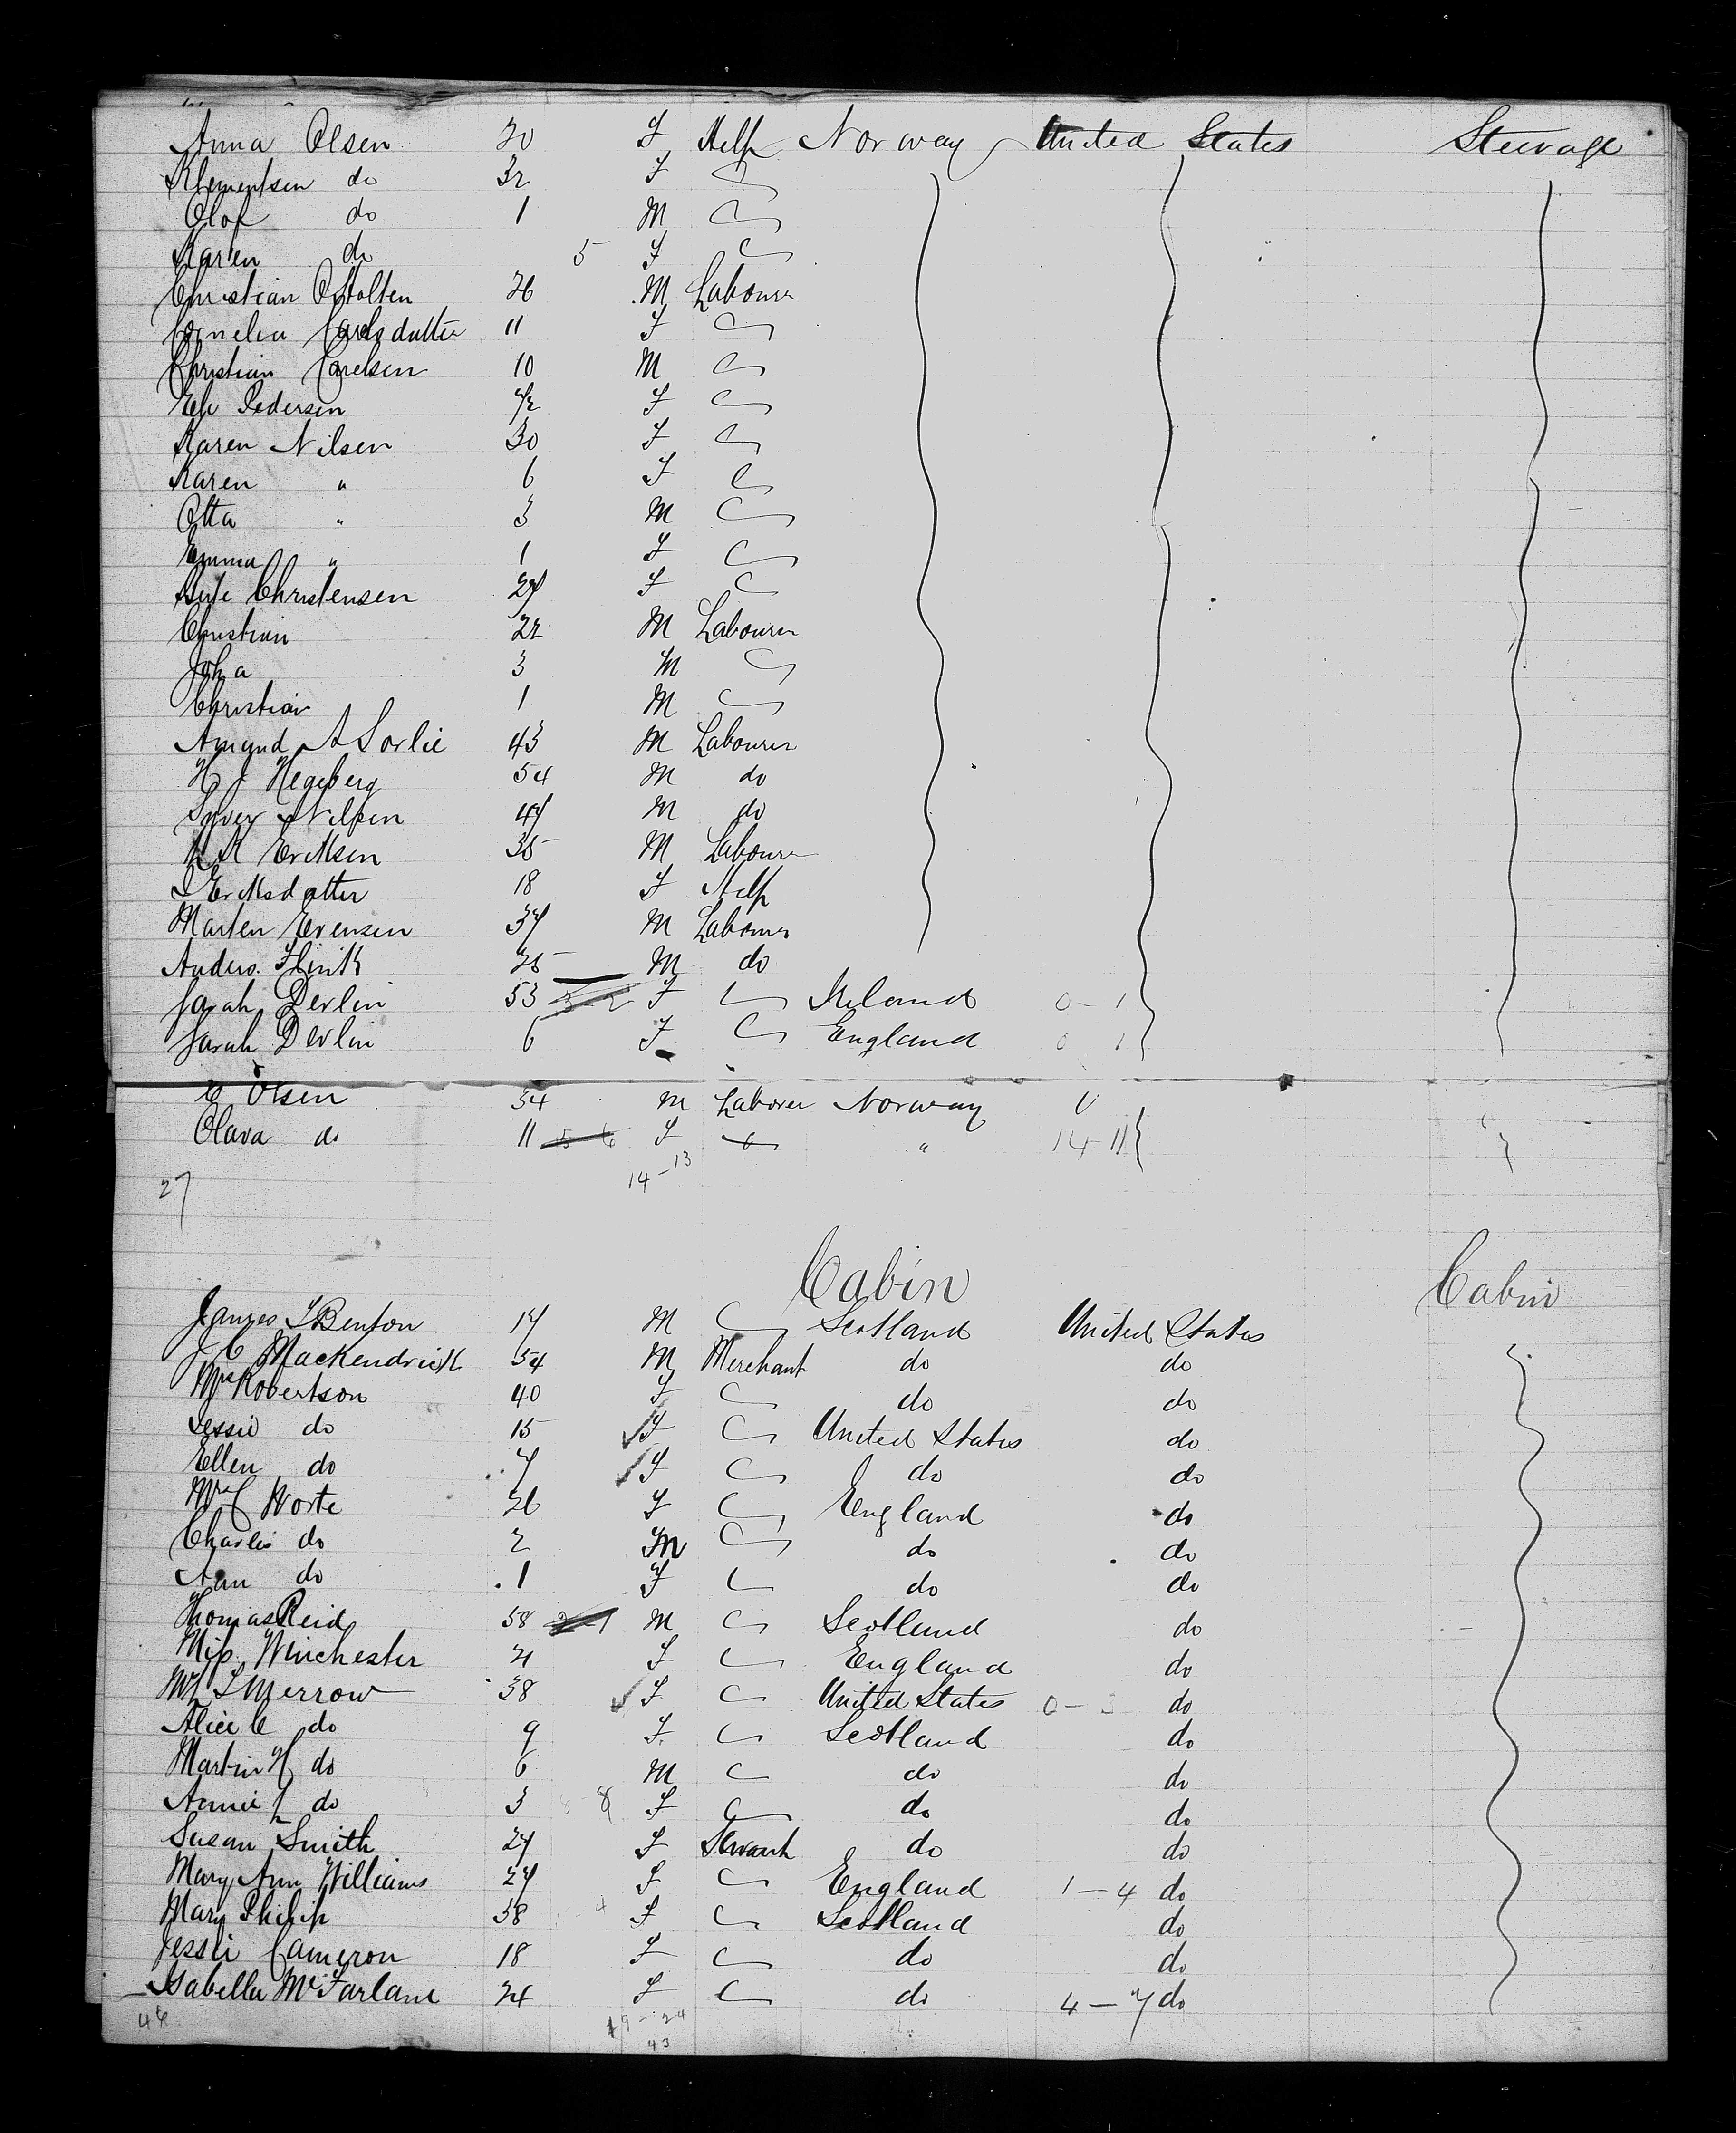 Anna Olsen 20 F Help Norway United States Steerage
Klementsen do 32 F
Olof do 1 M
Karen do 5 F
Christian Stolten 26 M Labourer
Cornelia Carlsdatter 11 F
Christian Carelsen 10 M
Pedersen F
Karen Nilsen 30 F
Karen " 6 F
Otta " 3 M
Emma " 1 F
Christensen 27 F
Christian 22 M Labourer
Joha 3 M
Christian 1 M
Amund A Sorlie 43 M Labourer
H J Hegeberg 54 M do
Nilsen 47 M do
K Eriksen 35 M Labourer
Eriksdatter 18 F Help
Marten Evensen 37 M Labourer
Anders Flink 25 M do
Sarah Devlin 53 F Ireland 0-1
Sarah Devlin 6 F England 0 1
E Olsen 34 M Laborer Norway
Olava do 11 5 6 F " 14-11
14-13
27
Cabin Cabin
James S Benton 17 M Scotland United States
J C Mackendrick 54 M Merchant do do
Mrs Robertson 40 F do do
Jessie do 15 F United States do
Ellen do 7 F do do
Mrs Worte 26 F England do
Charles do 2 M do do
Ann do 1 F do do
Thomas Reid 58 M Scotland do
Miss Winchester 21 F England do
Mrs S Merrow 38 F United States 0- do
Alice C do 9 F Scotland do
Martin H do 6 M do do
Annie J do 3 8-8 F do do
Susan Smith 27 F Servant do do
Mary Ann Williams 27 F England 1-4 do
Mary Philip 38 4 F Scotland do
Jessie Cameron 18 F do do
Isabella McFarlane 24 F do 4-7 do
46 19-24
43